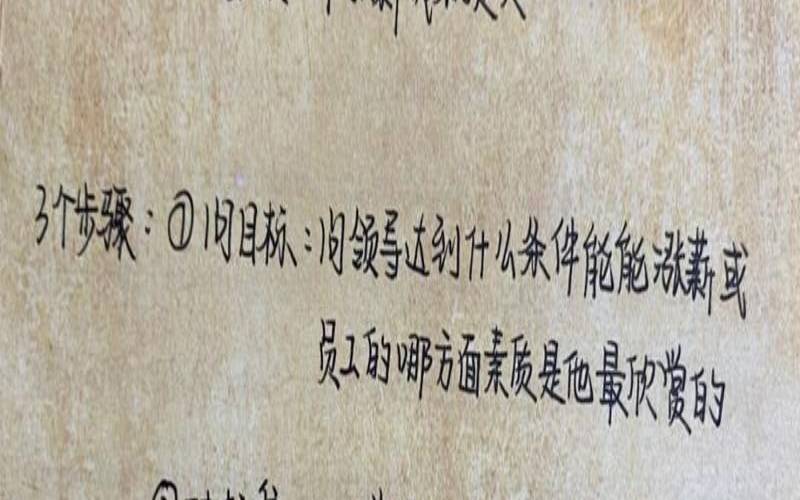 3个步骤:①问目标:问领导达到什么条件能能涨薪或
员工的哪方面素质是他最欣赏的